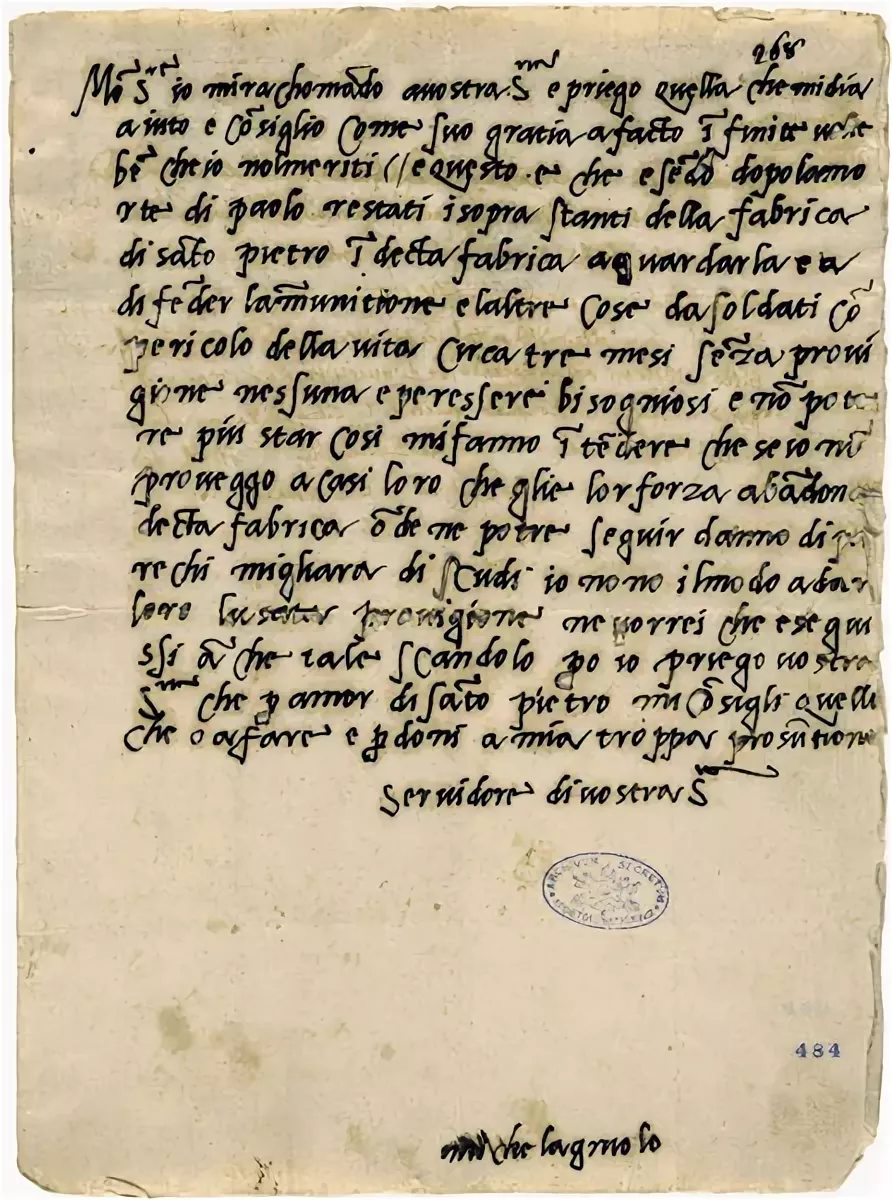 268
Mō Sre io mirachomādo avostra Sria e priego quella che midia
aiuto e cōsiglio come suo gratia a facto ī finite volte
bē che io nolmeriti // e questo e che esēdo dopolamo
rte di paolo restati i sopra stanti della fabrica
di sāto pietro ī decta fabrica aguardarla e a
difēder lamunitione e laltre cose da soldati cō
pericolo della vita circa tre mesi sēza provi
gione nessuna e peresserei bisogniosi e nō pote
re piu star cosi mifanno ī tēdere che se io nō
proveggo a casi loro che glie lor forza abādona
decta fabrica ōde ne potre seguir danno di pa
rechi migliara di scudi io nono ilmodo a dar
loro lusata provigione ne vorrei che esegui
ssi ā che tale scandolo po io priego vostra
Sria che p amor di sāto pietro mi cōsigli quello
che o a fare e pdoni a mia troppa prosūtione
servidore di vostra S
ARCHIVUM SECRETUM
484
michelagniolo